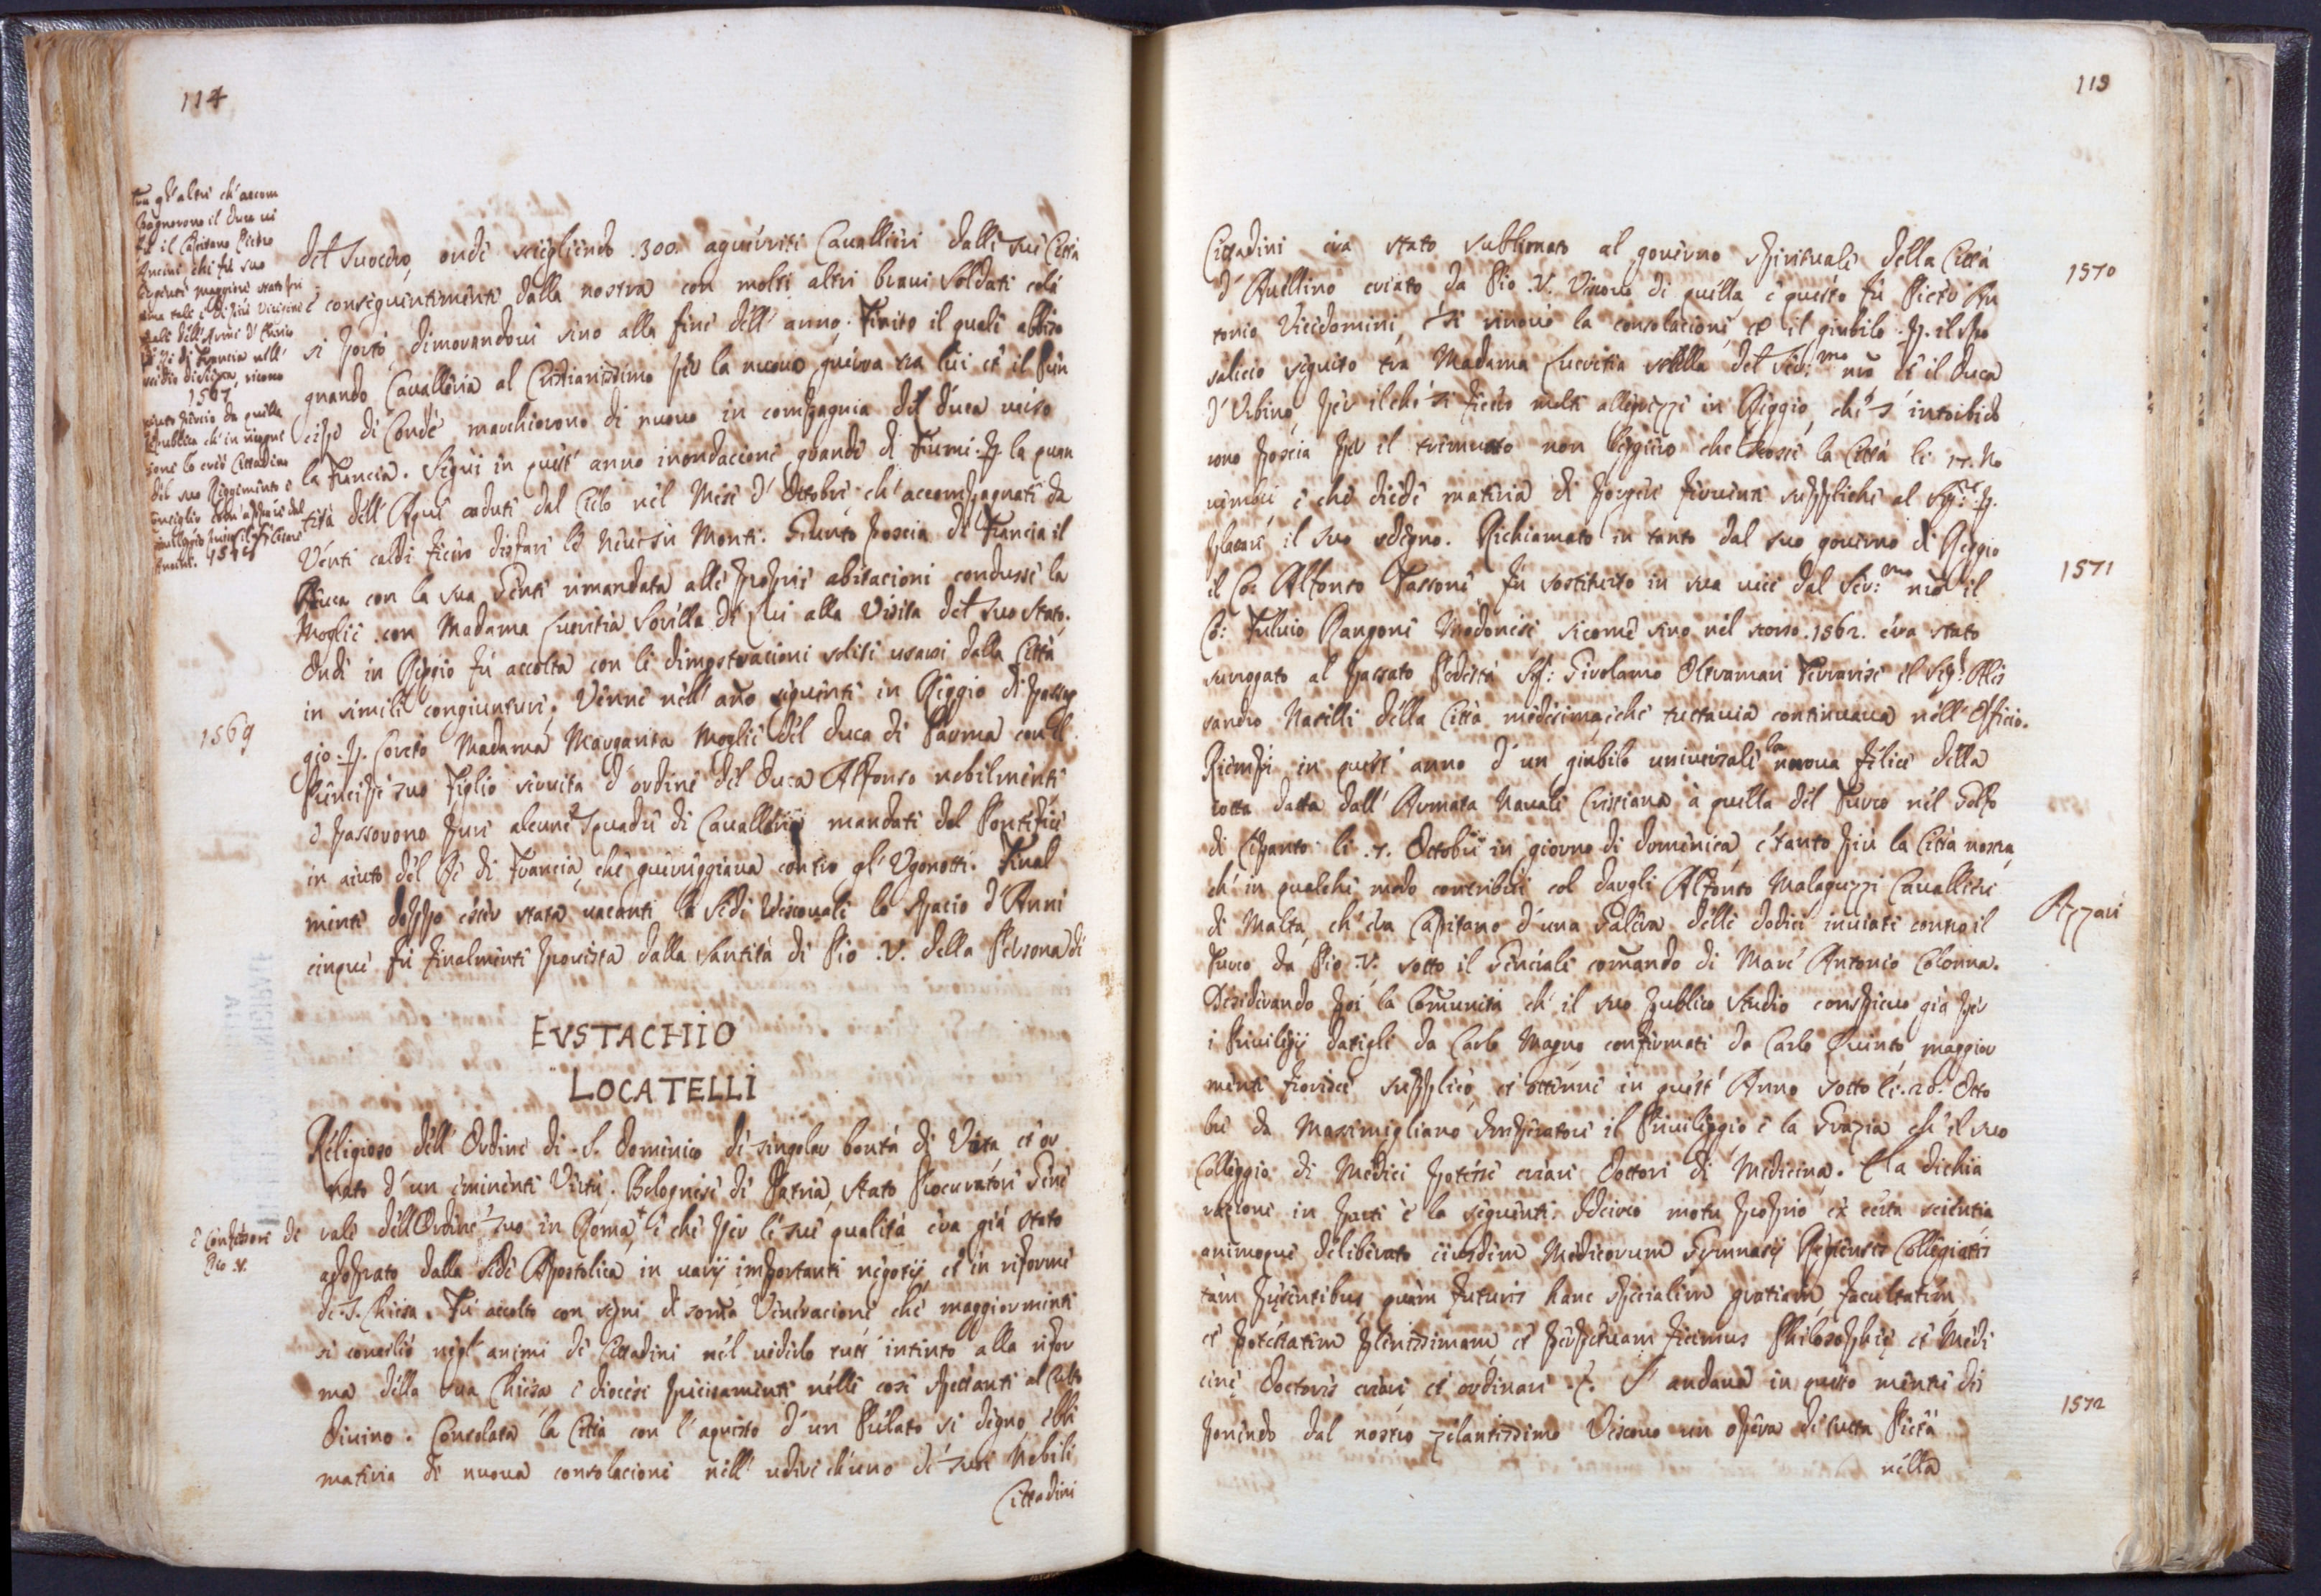 114
Tra gl'altri ch'accom
pagnorono il Duca ui
fù il Capitano Pietro
Ancini che fù suo
1567
sone lo creò Cittadino
del suo Reggimento e
1574
del Suocero, onde sciegliendo .300. aguerriti Cavallieri dalle sue Città
e conseguentemente dalla nostra con molti altri braui Soldati colà
si portò dimorandoui sino alla fine dell'anno. Finito il quale abbiso
gnando Cavalleria al Cristianissimo per la nuoua guerra tra lui et il Prin
cipe di Condè marchiorono di nuouo in compagnia del Duca uerso
la Francia. Seguì in quest'anno inondacione grande di Fiumi p. la quan
tità dell'Aque cadute dal Cielo nel Mese d'Ottobre ch'accompagnate da
Venti caldi fecero disfare le Neui sù Monti. Giunto poscia di Francia il
Duca con la sua Gente rimandata alle proprie abitacioni condusse la
Moglie con Madama Lucretia Sorella di Lui alla Visita del suo stato.
Onde in Reggio fù accolta con le dimostracioni solite usarsi dalla Città
in simili congiunture. Venne nell'año seguente in Reggio di passag
1569
gio p. Loreto Madama Margarita Moglie del Duca di Parma con il
Prencipe suo Figlio seruita d'ordine del Duca Alfonso nobilmente
e passorono pure alcune squadre di Cavalleria mandate dal Pontefice
in aiuto del Rè di Francia, che guerreggiaua contro gl'Vgonotti. Final
mente doppo esser stata uacante la Sede Vescouale lo spacio d'Anni
cinque fù finalmente prouista dalla Santità di Pio .V. della Persona di
EVSTACHIO
LOCATELLI
Religioso dell'Ordine di .S. Domenico di singolar bontà di Vita, et or
nato d'un eminente Virtù. Bolognese di Patria, stato Procuratore Gene
rale dell'Ordine suo in Roma,+ e che per le sue qualità era già stato
e Confessore di
Pio .V.
adoprato dalla Sede Apostolica in uarij importanti negotij, et in riforme
di .S. Chiesa. Fù accolto con segni di soma Veneracione che maggiormente
si conciliò negl'animi de Cittadini nel uederlo tutt'intento alla rifor
ma della sua Chiesa e Diocesi precisamente nelle cose spettanti al Culto
Diuino. Consolata la Città con l'aquisto d'un Prelato si degno, ebbe
materia di nuoua consolacione nell'udire ch'uno de suoi Nobili
Cittadini
115
Cittadini era stato sublimato al gouerno spirituale della Città
1570
d'Auellino creato da Pio .V. Vescouo di quella e questo fù Pietro An
tonio Vicedomini, e si rinouò la consolacione, et il giubilo p. il spo
salicio seguito tra Madama Lucretia sorella del Ser:mo nrõ et il Duca
d'Vrbino, per il che si fecero molte allegrezze in Reggio, che s'intorbido
rono poscia per il tremuoto non leggiero che scosse la Città li 17. No
uembre, e che diede materia di porgere feruenti suppliche al Sig:re p.
placare il suo sdegno. Richiamato in tanto dal suo gouerno di Reggio
1571
il Co: Alfonso Tassone fù sostituito in sua uece dal Ser:mo nrõ il
Co: Fuluio Rangone Modonese sicome sino nel scorso .1562. era stato
surrogato al passato Podestà Sig: Girolamo Oltramari Ferrarese il Sig: Ales
sandro Naselli della Città medesima, che tuttauia continuaua nell'Officio.
Riempì in quest'anno d'un giubilo uniuersale la nuoua felice della
rotta datta dall'Armata Nauale Cristiana à quella del Turco nel Golfo
di Lepanto li .7. Ottobre in giorno di Domenica, e tanto più la Città nostra,
ch'in qualche modo contribuì col dargli Alfonso Malaguzzi Cavalliere
Azzari
di Malta, ch'era Capitano d'una Galera delle dodici inuiate contro il
Turco da Pio .V. sotto il Generale comando di Marc'Antonio Colonna.
Desiderando poi la Comunità ch'il suo publico Studio conspicuo già per
i Priuilegij datigli da Carlo Magno confirmati da Carlo Quinto maggior
mente fiorisce supplicò, et ottenne in quest'Anno sotto li .20. Otto
bre da Massimigliano Imperatore il Priuileggio e la Grazia ch'il suo
Colleggio di Medici potesse creare Dottori di Medicina. E la dichia
razione in parte è la seguente. Idcirco motu proprio ex certa scientia
animoque deliberato eiusdem Medicorum Gymnasij Regiensis Collegiatis
tàm presentibus, quàm futuris hanc specialem gratiam, facultatem,
et potestatem plenissimam, et perpetuam fecimus Philosophię et Medi
cinę Doctores creare, et ordinare &. S'andaua in questo mentre dis
1572
ponendo dal nostro zelantissimo Vescouo un opera di tutta Pietà
nella